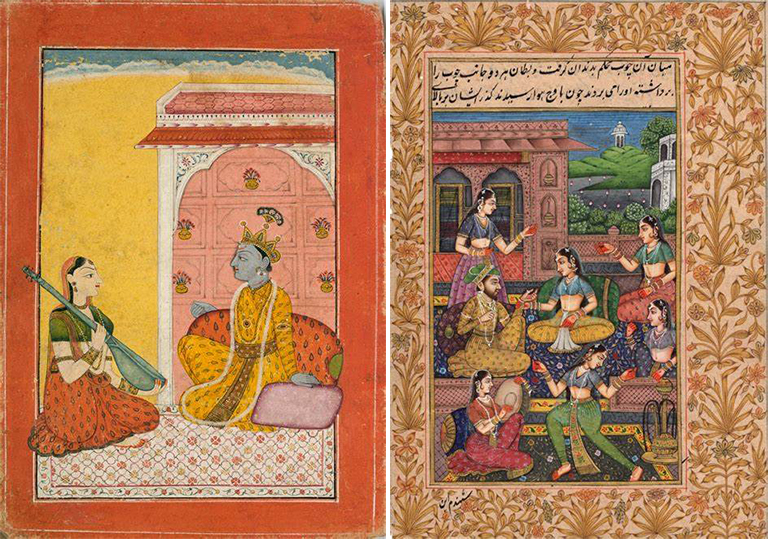 میان آن چوب محکم بدندان گرفت و بطان هر دو جانب چوب را
برداشته او را می بردند چون باوج هوا رسیدند گذر ایشان بر بالای